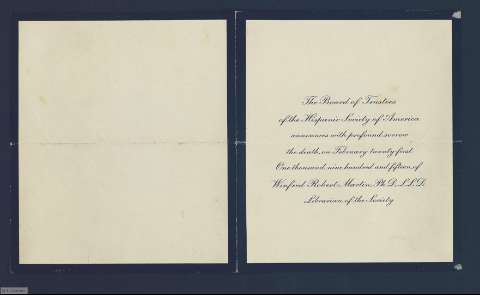 The Board of Trustees
of the Hispanic Society of America
announces with profound sorrow
the death, on February twenty first
One thousand, nine hundred and fifteen, of
Winfred Robert Martin, Ph.D., L.L.D.
Librarian of the Society